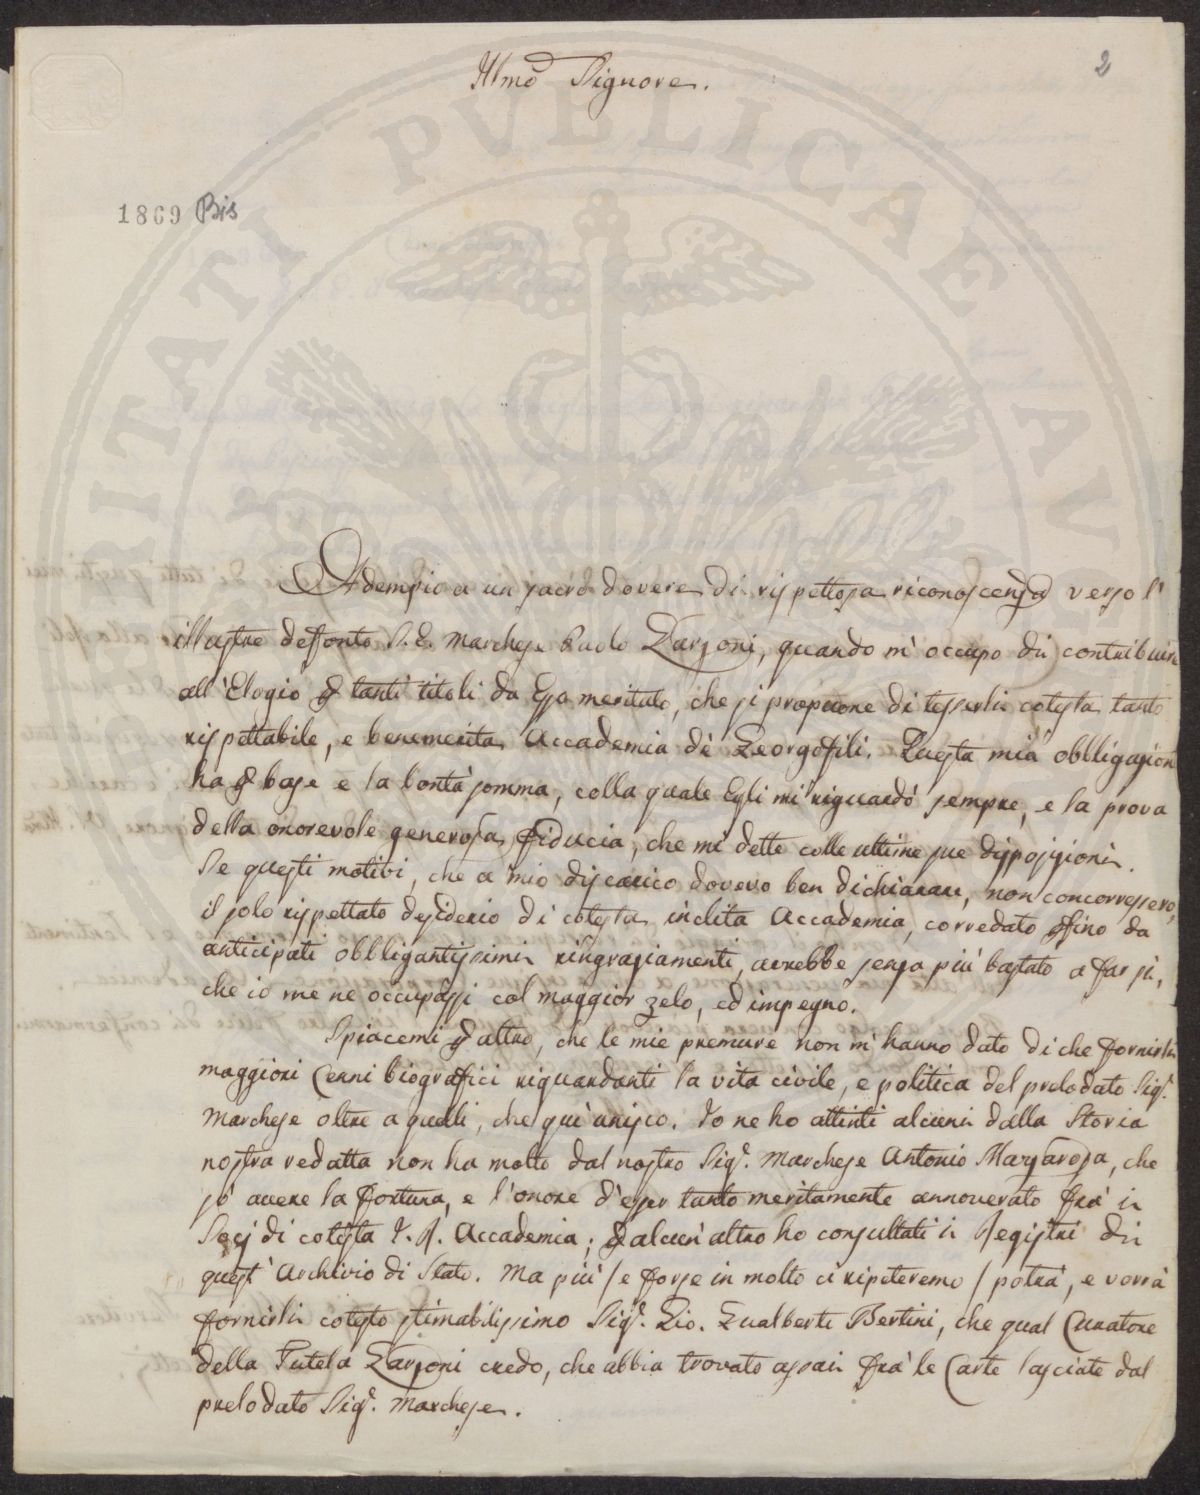 Illmo Signore.
2
1869 Bis
PROSPERITATI PVBLICAE AVGENDAE
Adempio a un sacro dovere di rispettosa riconoscenza verso l'
illustre deffonto S. E. Marchese Paolo Garzoni, quando m'occupo di contribuire
all'Elogio p tanti titoli da Esso meritato, che si propone di tesserli cotesta tanto
rispettabile, e benemerita Accademia dè Georgofili. Questa mia obbligazion
ha p base e la bontà somma, colla quale Egli mi riguardò sempre, e la prova
della onorevole generosa fiducia, che mi dette colle ultime sue disposizioni.
Se questi motivi, che a mio discarico dovevo ben dichiarare, non concorressero,
il solo rispettato desiderio di cotesta inclita Accademia, corredato fino da
anticipati obbligantissimi ringraziamenti, avrebbe senza più bastato a far sì,
che io me ne occupassi col maggior zelo, ed impegno.
Spiacemi p altro, che le mie premure non m'hanno dato di che fornirli
maggiori Cenni biografici riguardanti la vita civile, e politica del prelodato Sigr.
Marchese oltre a quelli, che qui unisco. Io ne ho attinti alcuni dalla Storia
nostra redatta non ha molto dal nostro Sigr. Marchese Antonio Mazzarosa, che
so avere la fortuna, e l'onore d'esser tanto meritamente annoverato frà i
Socj di cotesta I. R. Accademia; p alcun'altro ho consultati i Registri di
quest'Archivio di Stato. Ma più / e forse in molto ci ripeteremo / potrà, e vorrà
fornirli cotesto stimabilissimo Sigr. Gio. Gualberto Bertini, che qual Curatore
della Tutela Garzoni credo, che abbia trovato assai frà le Carte lasciate dal
prelodato Sigr. Marchese.